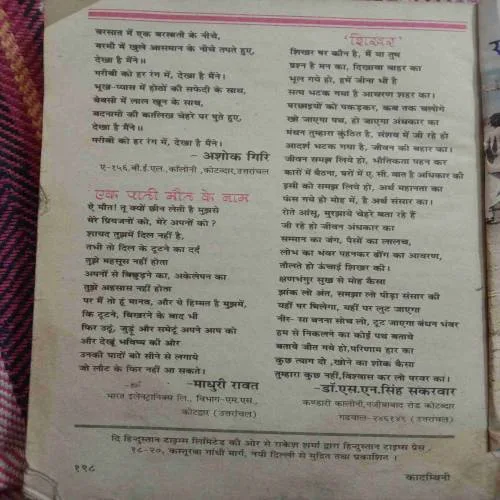 बरसात में एक बरसाती के नीचे,
गरमी में खुले आसमान के नीचे तपते हुए,
देखा है मैंने॥
गरीबी को हर रंग में, देखा है मैंने।
भूख-प्यास में होठों की सफेदी के साथ,
बेबसी में लाल खून के साथ,
बदनामी की कालिख चेहरे पर पुते हुए,
देखा है मैंने॥
गरीबी को हर रंग में, देखा है मैंने।
- अशोक गिरि
ए-२५६,बी.ई.एल.,कॉलोनी ,कोटद्वार,उत्तरांचल
एक पाती मौत के नाम
ऐ मौत! तू क्यों छीन लेती है मुझसे
मेरे प्रियजनों को, मेरे अपनों को ?
शायद तुझमें दिल नहीं है,
तभी तो दिल के टूटने का दर्द
तुझे महसूस नहीं होता
अपनों से बिछुड़ने का, अकेलेपन का
तुझे अहसास नहीं होता
पर मैं तो हूं मानव, और ये हिम्मत है मुझमें,
कि टूटने, बिखरने के बाद भी
फिर उठूं, जुड़ूं और समेटूं अपने आप को
और देखूं भविष्य की ओर
उनकी यादों को सीने से लगाये
जो लौट के फिर नहीं आ सकते।
-माधुरी रावत
भारत इलेक्ट्रानिक्स लि., विभाग-एम.एस.,
कोटद्वार (उत्तरांचल)
'शिखर'
शिखर पर कौन है, मैं या तुम
प्रश्न है मन का, दिखावा बाहर का
भूल गये हो, हमें जीना भी है
सत्य भटक गया है आचरण शहर का।
परछाइयों को पकड़कर, कब तक चलोगे
खो जाएगा पथ, हो जाएगा अंधकार का
मंथन तुम्हारा कुंठित है, संशय में जी रहे हो
आदर्श भटक गया है, जीवन की बहार का।
जीवन समझ लिये हो, भौतिकता पहन कर
कारों में बैठना, घरों में ए. सी. बात है अधिकार की
इसी को समझ लिये हो, अर्थ महानता का
फंस गये हो मोह में, है अर्थ संसार का।
रोते आंसू, मुरझाये चेहरे बता रहे हैं
जी रहे हो जीवन अंधकार का
सम्मान का जंग, पैसों का लालच,
लोभ का भंवर पहनकर ढोंग का आवरण,
तौलते हो ऊंचाई शिखर की।
क्षणभंगुर सुख से मोह कैसा
झांक लो अंत, समझा लो पीड़ा संसार की
यहीं पर मिलेगा, यहीं पर लुट जाएगा
नीर- सा बनना सोच लो, टूट जाएगा बंधन भंवर
हम से निकलने का कोई पथ बताये
बताये जीत गये हो,परिणाम हार का
कुछ त्याग दो ,खोने का शोक कैसा
तुम्हारा कुछ नहीं,विश्वास कर लो परवर का।
-डॉ.एस.एन.सिंह सकरवार
कण्डारी कालोनी,नजीबाबाद रोड कोटद्वार
गढवाल-२४६१४९ (उत्तरांचल)
दि हिन्दुस्तान टाइम्स लिमिटेड की ओर से राकेश शर्मा द्वारा हिन्दुस्तान टाइम्स प्रेस,
१८-२०, कस्तूरबा गांधी मार्ग, नयी दिल्ली से मुद्रित तथा प्रकाशित ।
१९८
कादम्बिनी